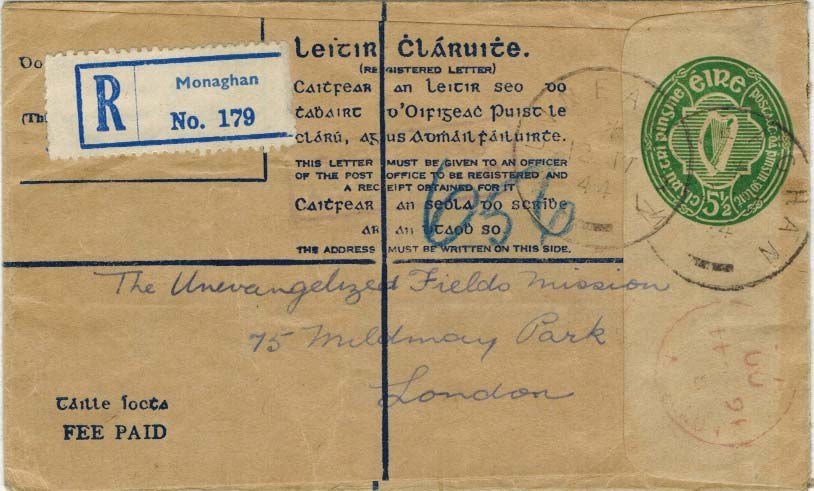 Do
(Th
R
Monaghan
No. 179
Leitir Ċláruiṫe.
(REGISTERED LETTER)
Caitfear an leitir seo do
ṫaḃairt d'Oifigeaċ Puist le
clárú, agus Admáil ḟáiluirte.
THIS LETTER MUST BE GIVEN TO AN OFFICER
OF THE POST OFFICE TO BE REGISTERED AND
A RECEIPT OBTAINED FOR IT
Caitfear an seola do scríbe
ar an dtaob so
THE ADDRESS MUST BE WRITTEN ON THIS SIDE.
éire
5½
44
GHAN
The Unevangelized Fields Mission
75 Mildmay Park
London
Táille íocṫa
FEE PAID